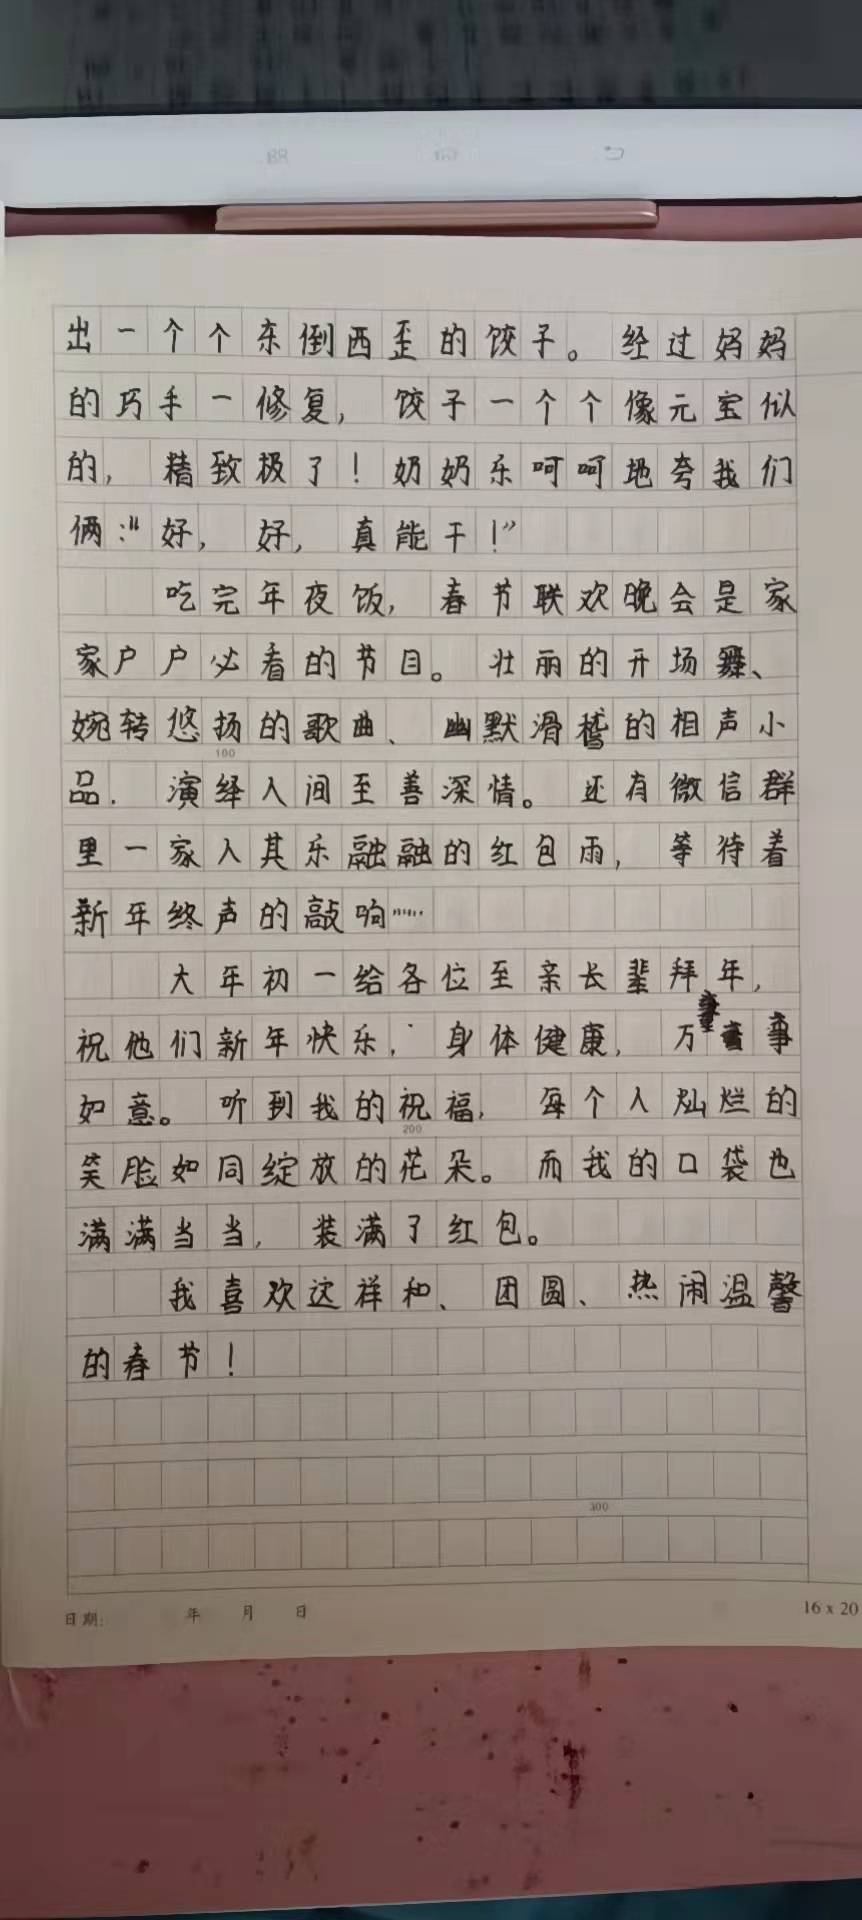 出一个个东倒西歪的饺子。经过妈妈
的巧手一修复，饺子一个个像元宝似
的，精致极了！奶奶乐呵呵地夸我们
俩：“好，好，真能干！”
吃完年夜饭，春节联欢晚会是家
家户户必看的节目。壮丽的开场舞、
婉转悠扬的歌曲、幽默滑稽的相声小
100
品．演绎人间至善深情。还有微信群
里一家人其乐融融的红包雨，等待着
新年终声的敲响……
大年初一给各位至亲长辈拜年，
祝他们新年快乐，身体健康，万事
如意。听到我的祝福，每个人灿烂的
200
笑脸如同绽放的花朵。而我的口袋也
满满当当，装满了红包。
我喜欢这样和、团圆、热闹温馨
的春节！
300
日期: 年 月 日
16 x 20